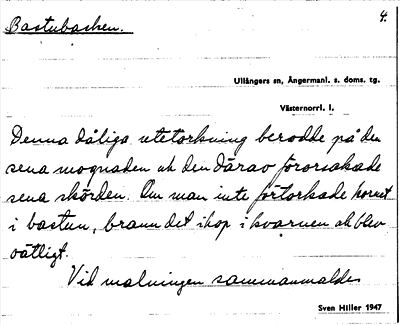 4.
Bastubasken.
Ullångers sn, Ångermanl. s. doms. tg.
Västernorrl. l.
Denna dåliga utetorkning berodde på den
sena mognaden ok den därav förorsakade
sena skörden. Om man inte förtorkade kornet
i bastun, brann det ihop i kvarnen ok blev
oätligt.
Vid malningen sammanmaldes
Sven Hiller 1947